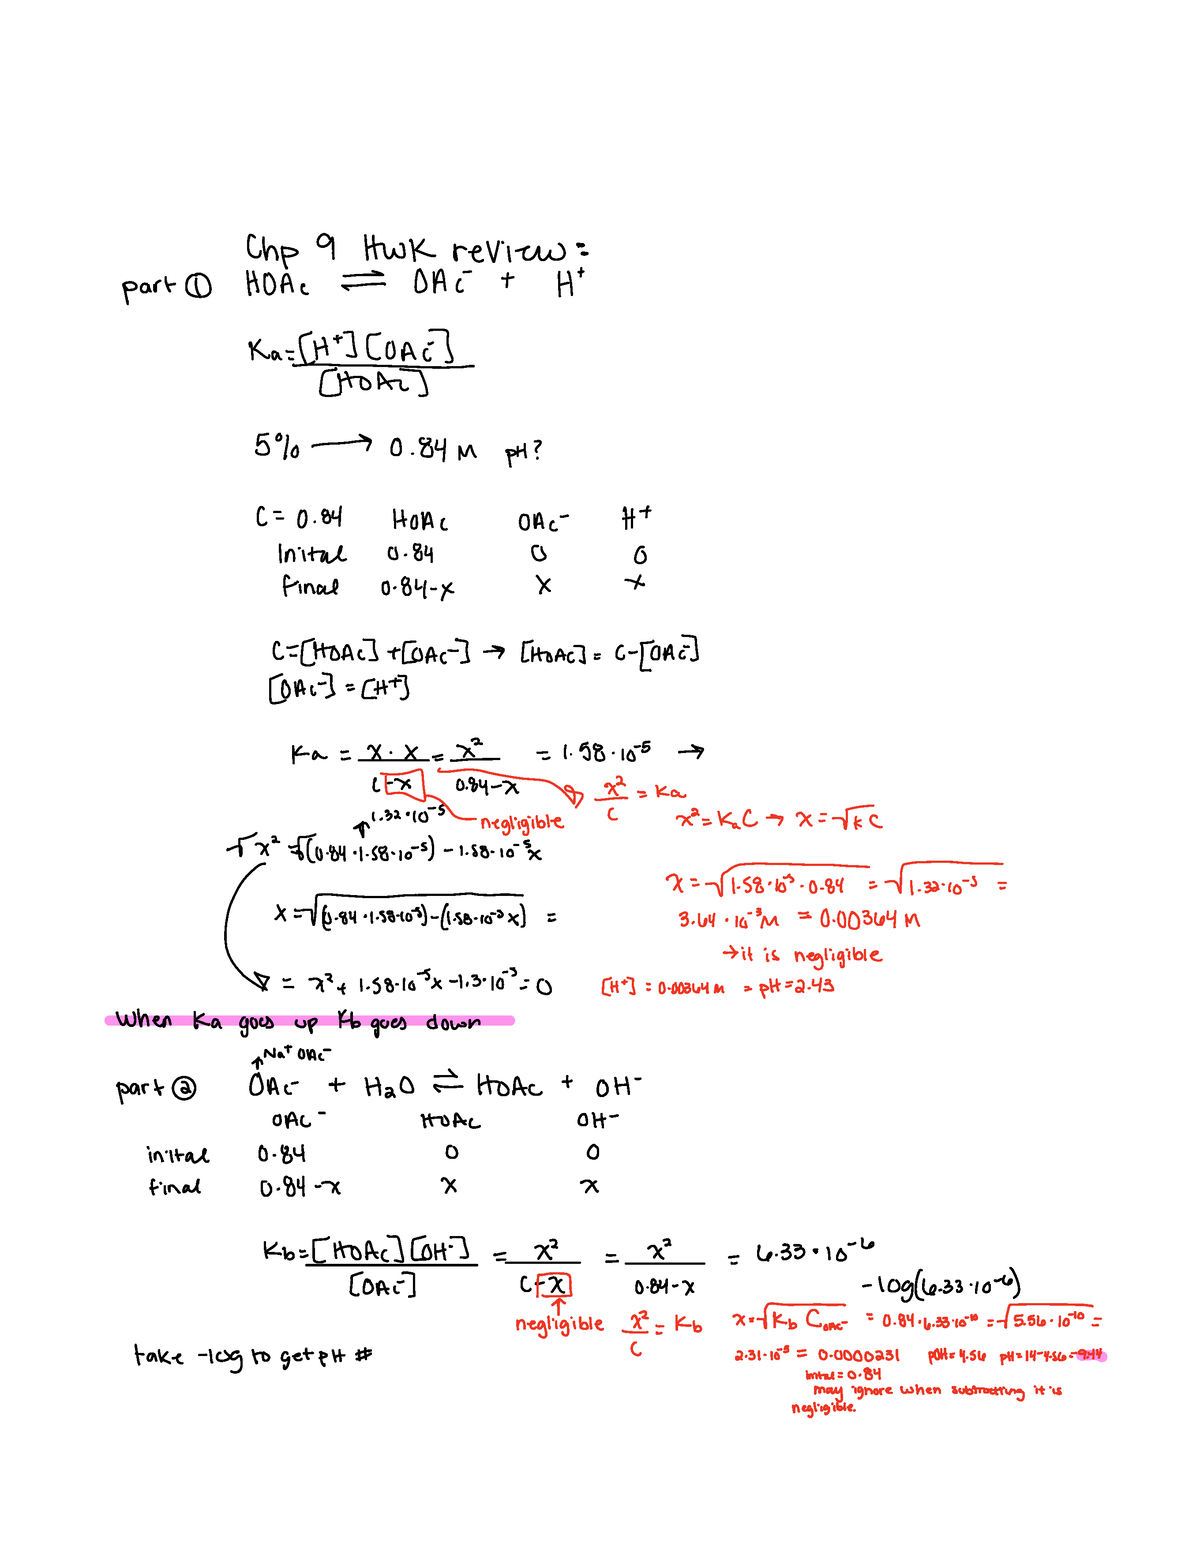 Chp 9 HWK review:
part ① HOAc ⇌ OAc⁻ + H⁺
Ka = [H⁺][OAc⁻]
[HOAc]
5% → 0.84 M pH?
C = 0.84 HOAc OAc⁻ H⁺
Inital 0.84 0 0
final 0.84-x x x
C=[HOAc]+[OAc⁻] → [HOAc] = C-[OAc⁻]
[OAc⁻] = [H⁺]
Ka = x·x = x² = 1.58·10⁻⁵ →
C-x 0.84-x
x² = Ka
C
negligible
x² = KaC → x = √KC
1.32·10⁻⁵
√x² = √(0.84·1.58·10⁻⁵) - 1.58·10⁻⁵x
x = √(0.84·1.58·10⁻⁵)-(1.58·10⁻⁵x) =
= x² + 1.58·10⁻⁵x - 1.3·10⁻⁵ = 0
x = √1.58·10⁻⁵·0.84 = √1.32·10⁻⁵ =
3.64·10⁻³M = 0.00364 M
→ it is negligible
[H⁺] = 0.00364 M = pH = 2.43
When Ka goes up Kb goes down
Na⁺ OAc⁻
part ② OAc⁻ + H₂O ⇌ HOAc + OH⁻
OAc⁻ HOAc OH⁻
inital 0.84 0 0
final 0.84-x x x
Kb = [HOAc][OH⁻] = x² = x² = 6.33·10⁻⁶
[OAc⁻] C-x 0.84-x
-log(6.33·10⁻⁶)
negligible x² = Kb
C
x = √Kb COAc⁻ = 0.84·6.33·10⁻¹⁰ = √5.56·10⁻¹⁰ =
2.31·10⁻⁵ = 0.0000231 pOH = 4.56 pH = 14-4.56 = 9.44
inital = 0.84
may ignore when subtracting it is
negligible.
take -log to get pH #